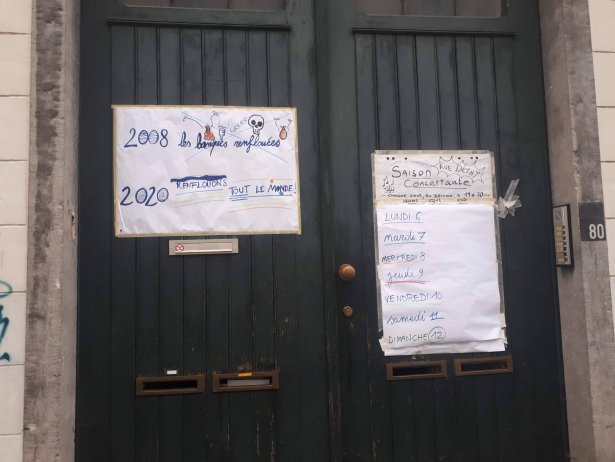 2008 les banques renflouées
2020 RENFLOUONS TOUT LE MONDE!
SAISON RUE DETHY
Concertante
LUNDI 6
mardi 7
MERCREDI 8
jeudi 9
VENDREDI 10
samedi 11
DIMANCHE 12
80